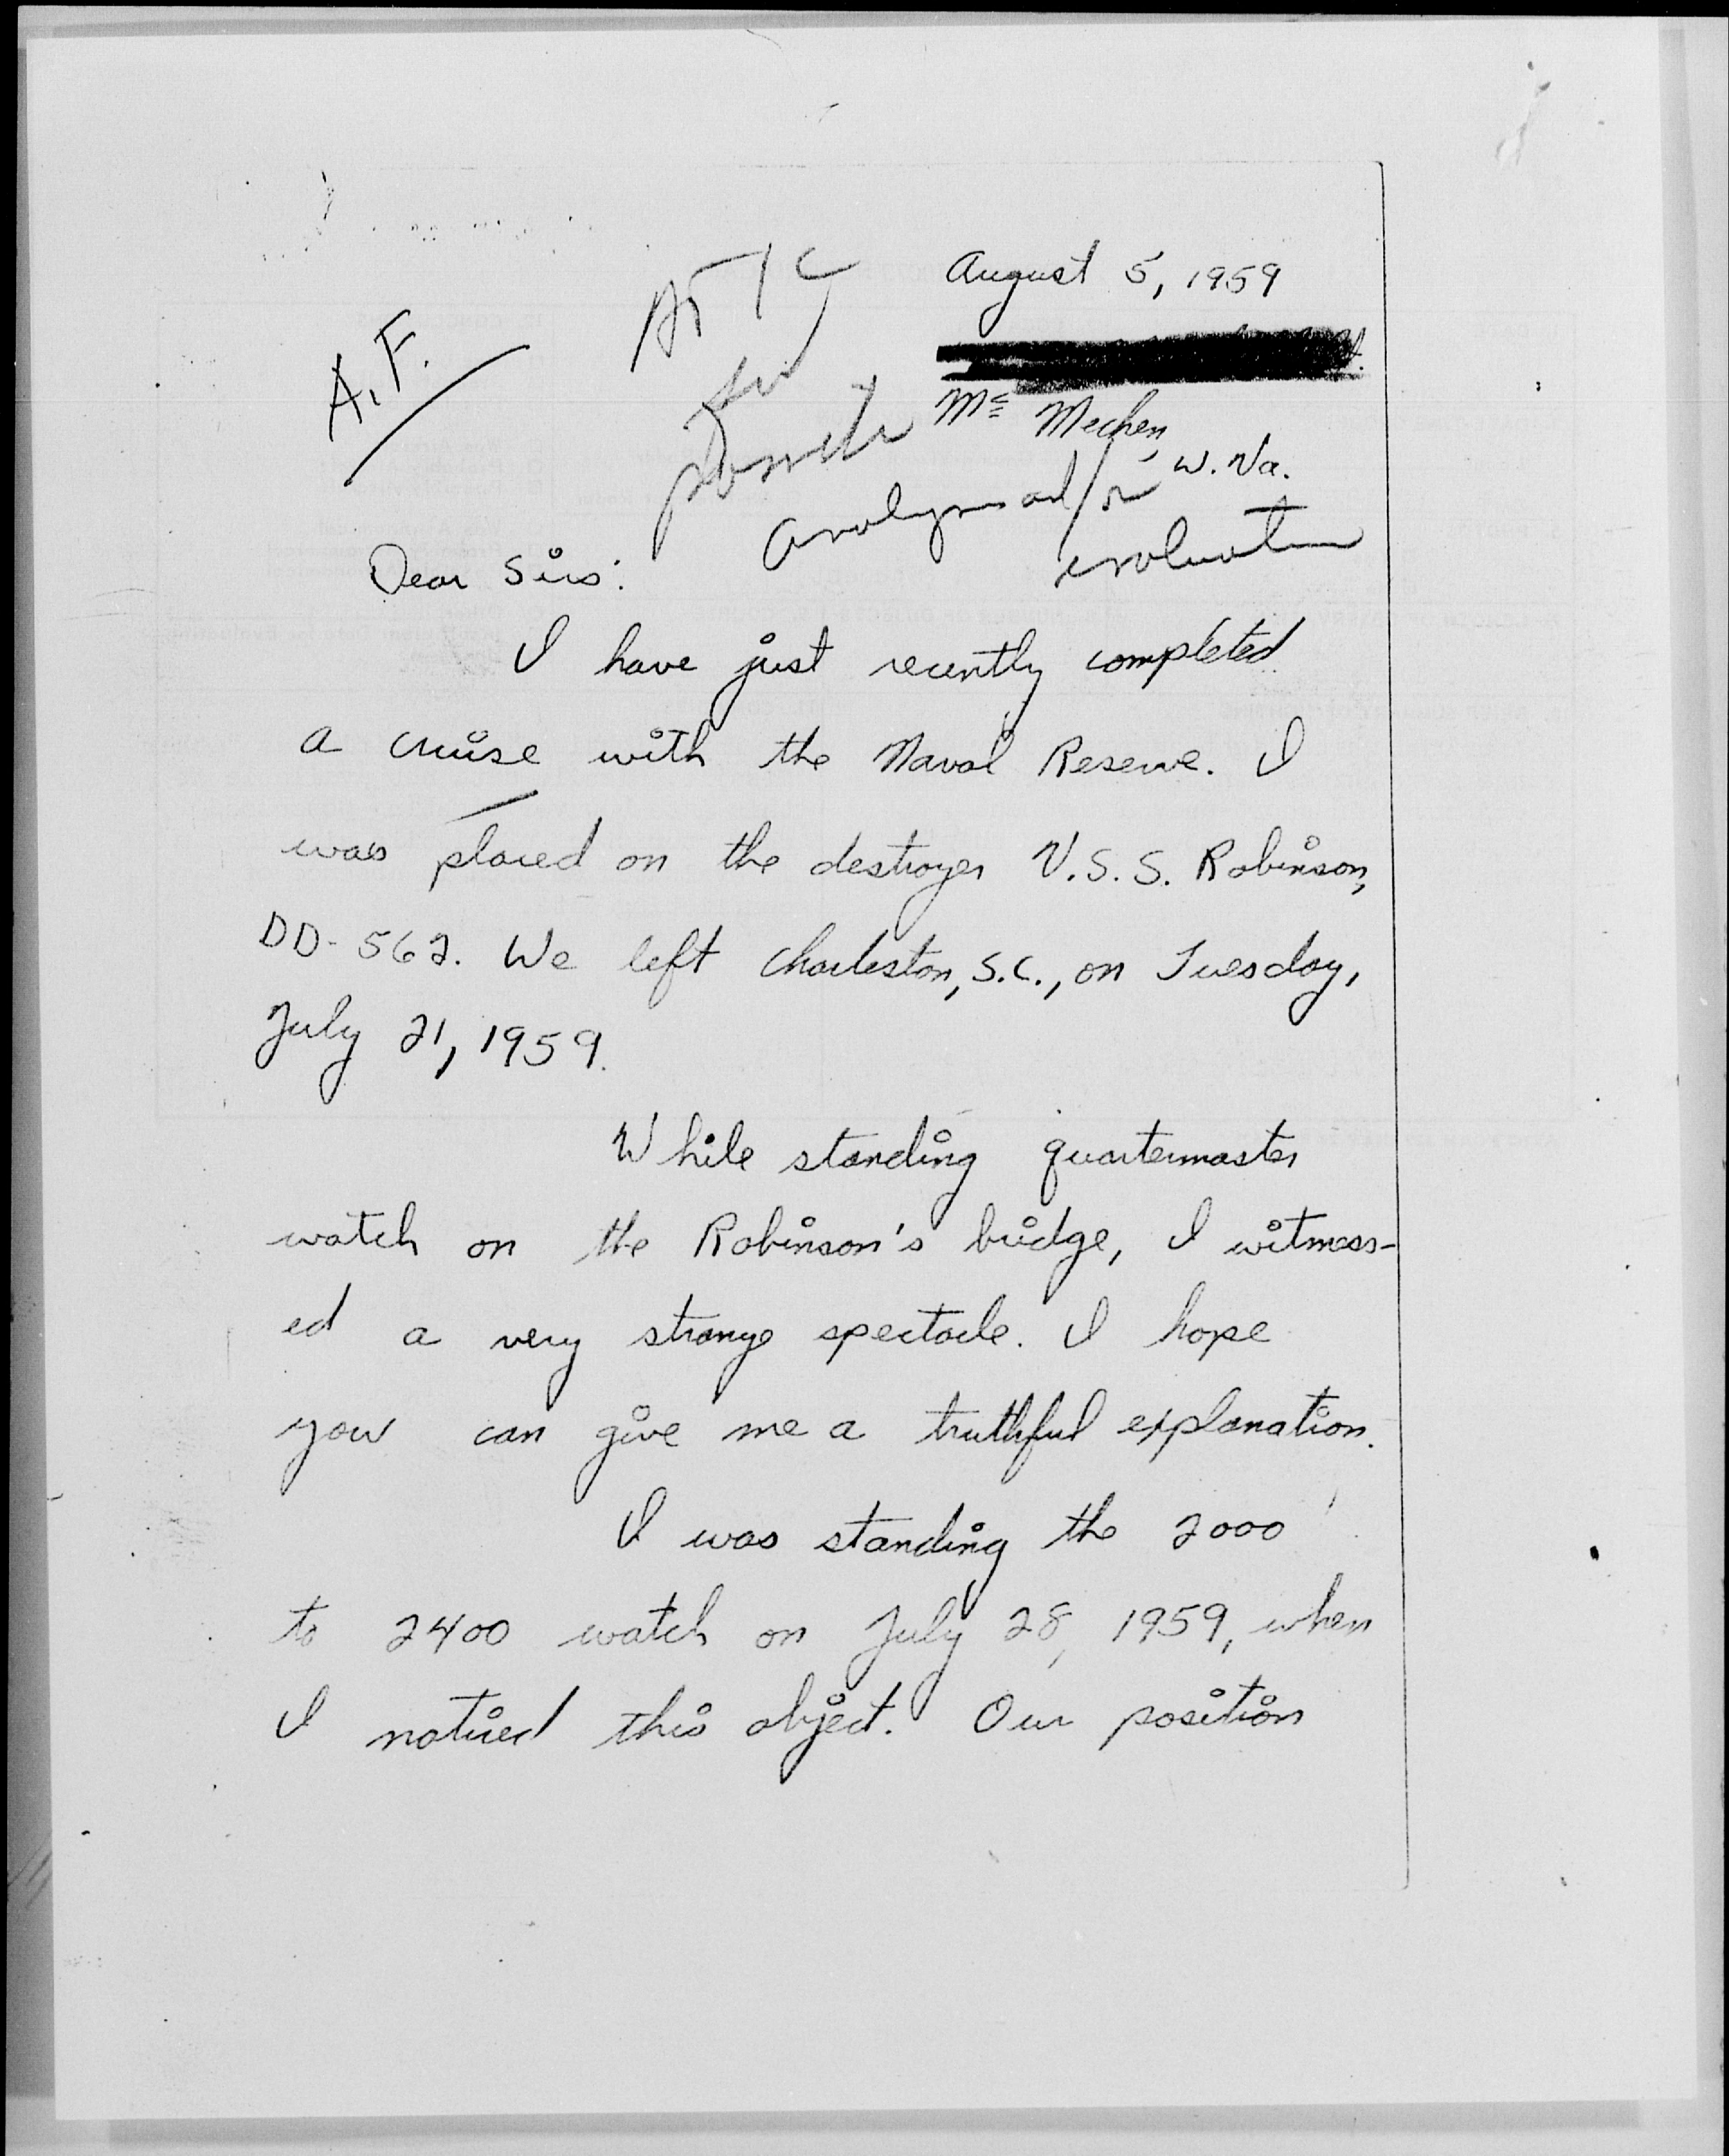 August 5, 1959
A.F.
ATIC
for
possible
Mc Mechen,
W. Va.
analysis and/or
evaluation
Dear Sirs:
I have just recently completed
a cruise with the Naval Reserve. I
was placed on the destroyer U.S.S. Robinson,
DD-562. We left Charleston, S.C., on Tuesday,
July 21, 1959.
While standing quartermaster
watch on the Robinson's bridge, I witness-
ed a very strange spectacle. I hope
you can give me a truthful explanation.
I was standing the 2000
to 2400 watch on July 28, 1959, when
I noticed this object. Our position